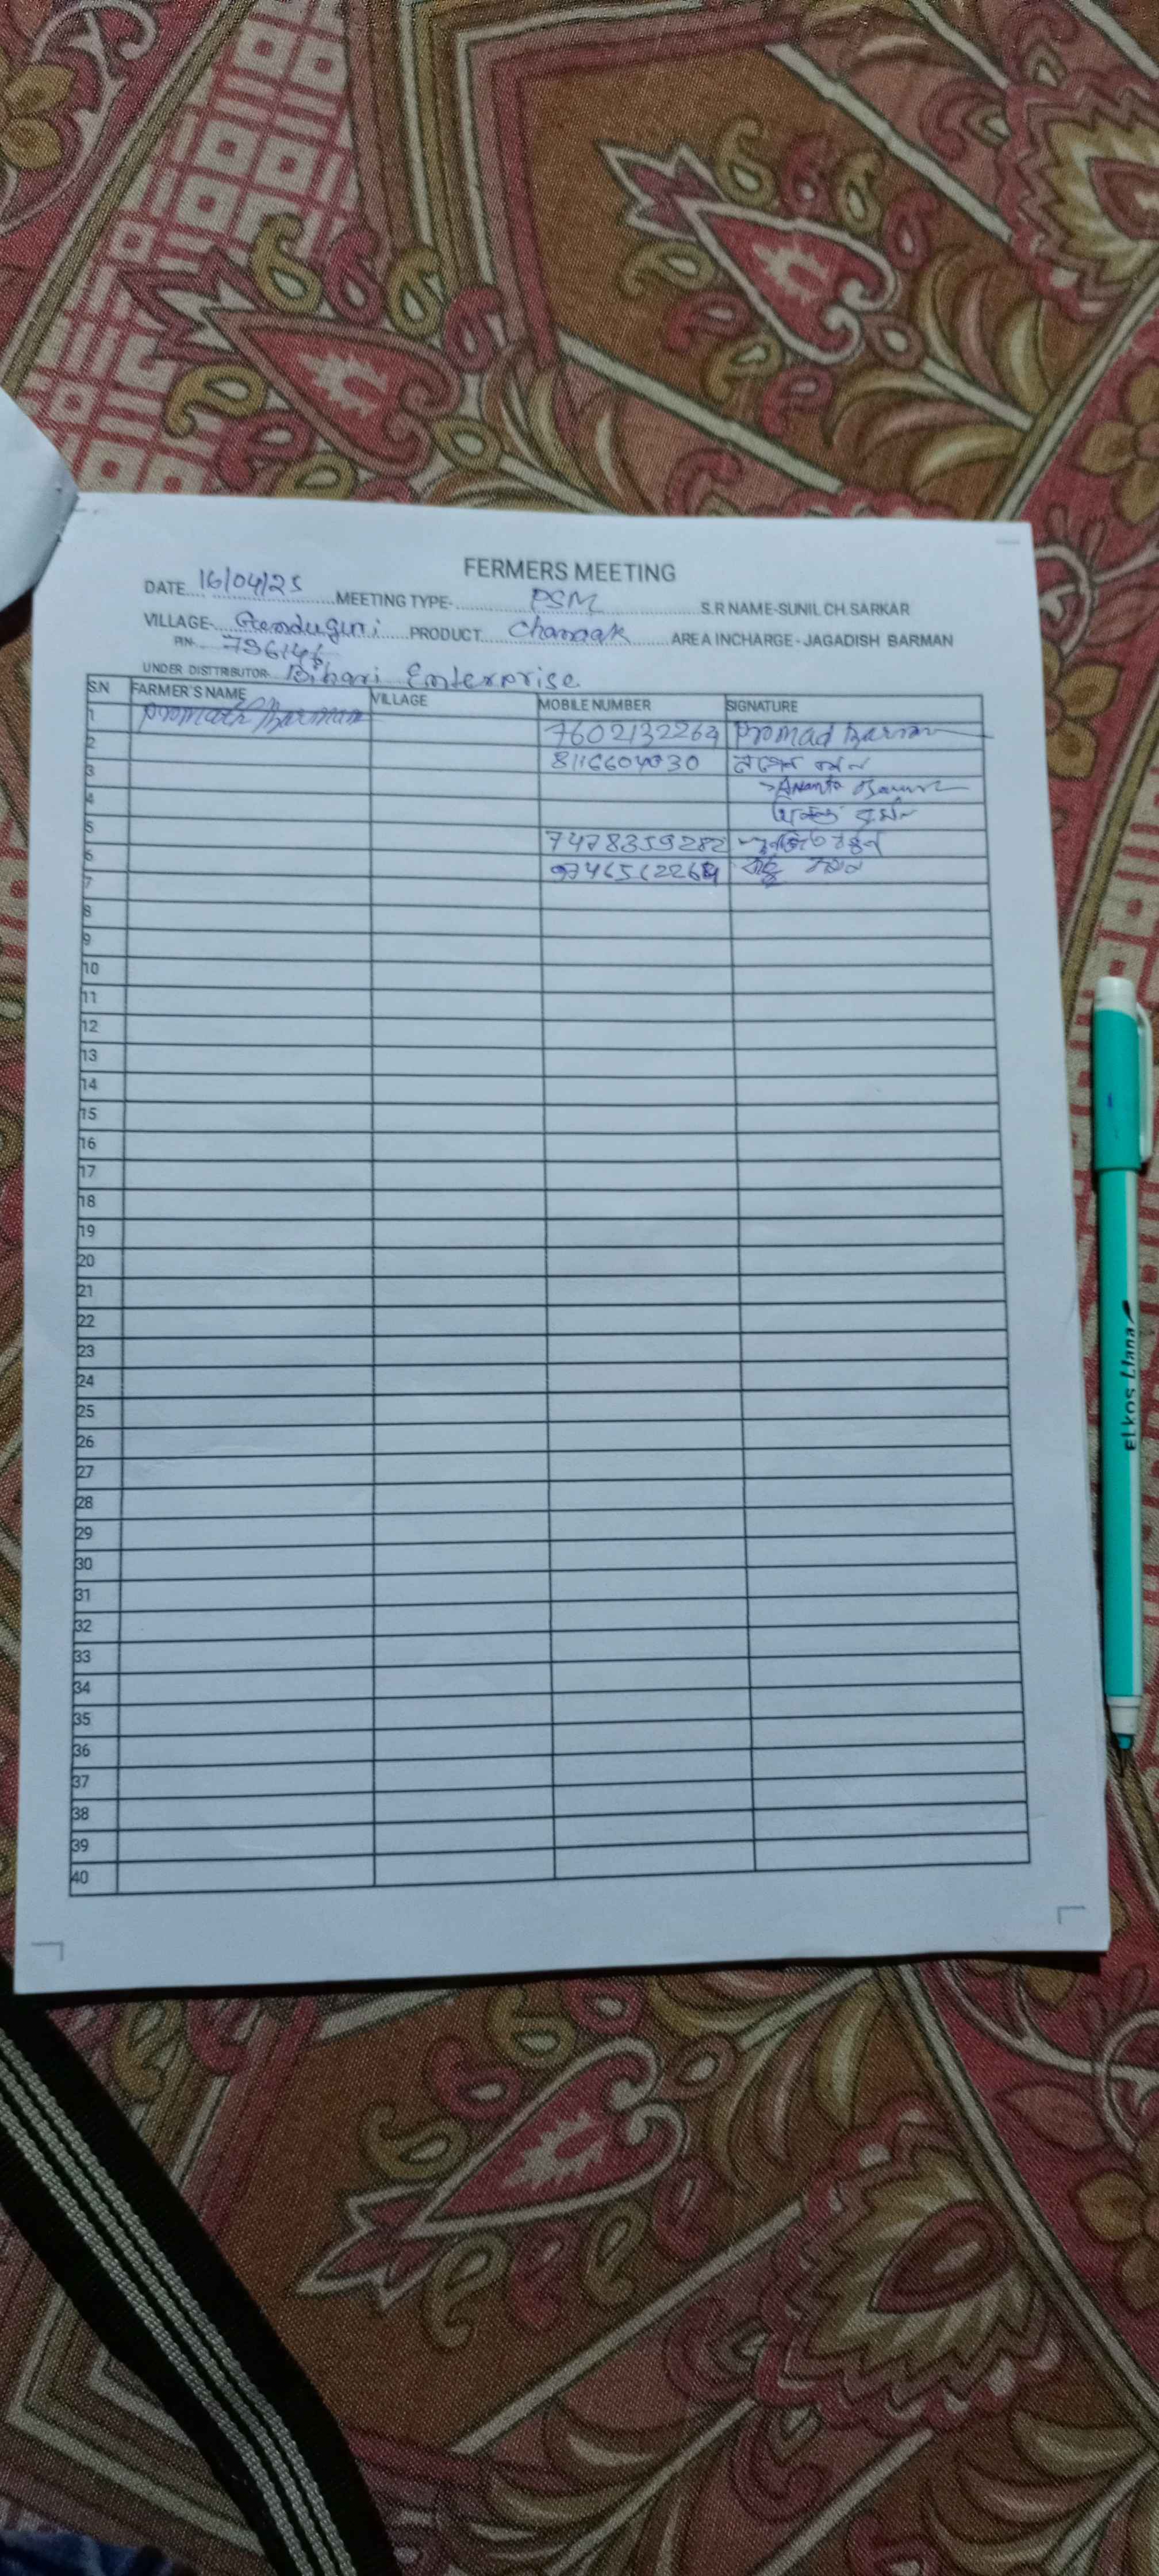 FERMERS MEETING
DATE 16/04/25 MEETING TYPE- PSM S.R NAME-SUNIL CH. SARKAR
VILLAGE- PRODUCT Chamak AREA INCHARGE - JAGADISH BARMAN
PIN-
UNDER DISTTRIBUTOR- Bihari Enterprise
S.N FARMER'S NAME VILLAGE MOBILE NUMBER SIGNATURE
1 Barman 7602132264 Promad Barman
2 8116604030
3 Ananta
4
5 7478359282
6
7
8
9
10
11
12
13
14
15
16
17
18
19
20
21
22
23
24
25
26
27
28
29
30
31
32
33
34
35
36
37
38
39
40
ELKOS Liana